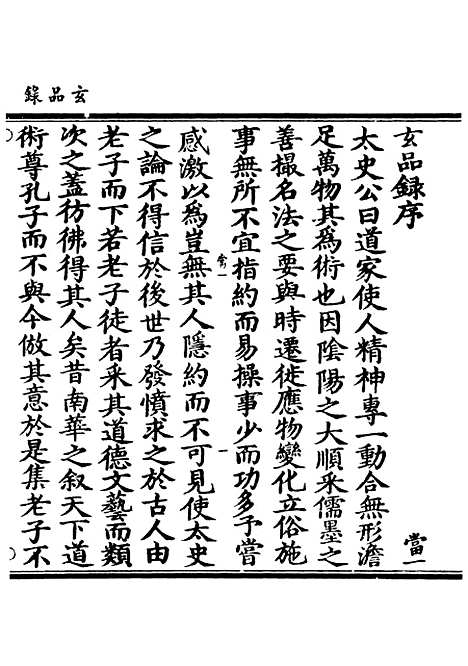 玄品錄
玄品錄序
當一
太史公曰道家使人精神專一動合無形澹
足萬物其為術也因陰陽之大順采儒墨之
善撮名法之要與時遷徙應物變化立俗施
事無所不宜指約而易操事少而功多予嘗
當一
一
感激以為豈無其人隱約而不可見使太史
之論不得信於後世乃發憤求之於古人由
老子而下若老子徒者采其道德文藝而類
次之蓋彷彿得其人矣昔南華之叙天下道
術尊孔子而不與今倣其意於是集老子不